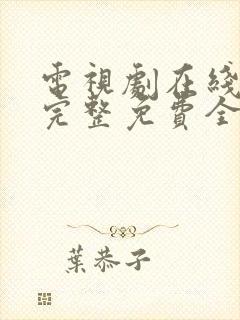 電視劇在綫
完整免費全
葉恭子